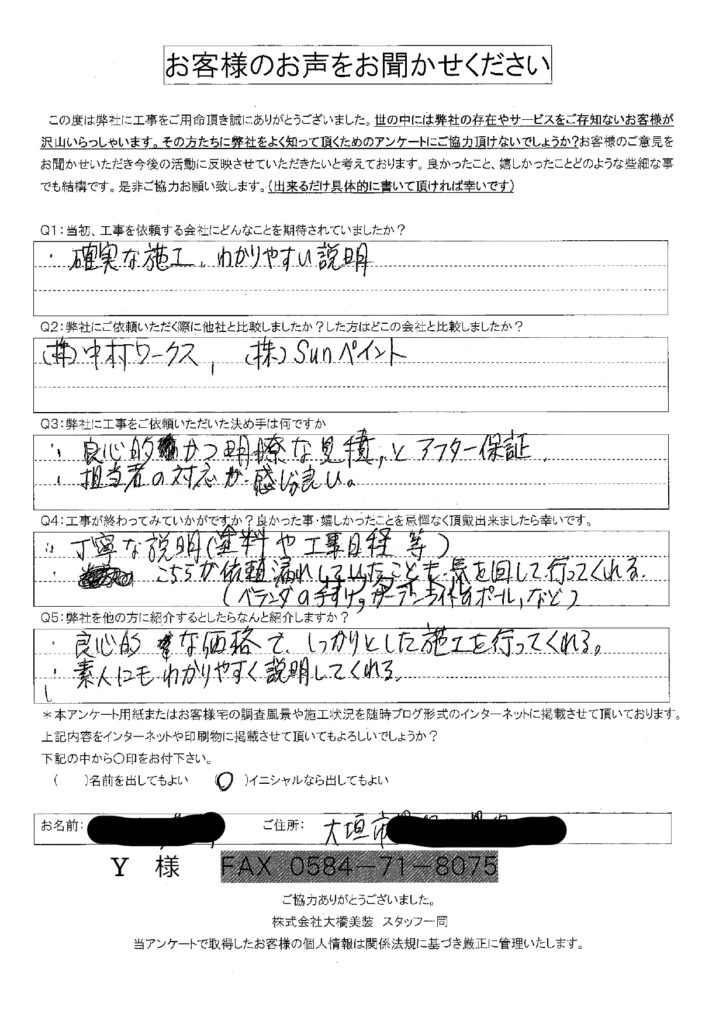 お客様のお声をお聞かせください
この度は弊社に工事をご用命頂き誠にありがとうございました。世の中には弊社の存在やサービスをご存知ないお客様が
沢山いらっしゃいます。その方たちに弊社をよく知って頂くためのアンケートにご協力頂けないでしょうか?お客様のご意見を
お聞かせいただき今後の活動に反映させていただきたいと考えております。良かったこと、嬉しかったことどのような些細な事
でも結構です。是非ご協力お願い致します。(出来るだけ具体的に書いて頂ければ幸いです)
Q1:当初、工事を依頼する会社にどんなことを期待されていましたか?
・確実な施工、わかりやすい説明
Q2:弊社にご依頼いただく際に他社と比較しましたか?した方はどこの会社と比較しましたか?
(株)中村ワークス, (株)Sunペイント
Q3:弊社に工事をご依頼いただいた決め手は何ですか
・良心的かつ明瞭な見積,とアフター保証.
・担当者の対応が感じ良い。
Q4:工事が終わってみていかがですか?良かった事・嬉しかったことを忌憚なく頂戴出来ましたら幸いです。
・丁寧な説明(塗料や工事日程 等)
・こちらが依頼漏れしていたことも気を回して行ってくれる.
(ベランダの手すり,ポール,など)
Q5:弊社を他の方に紹介するとしたらなんと紹介しますか?
・良心的な価格で、しっかりとした施工を行ってくれる。
・素人にもわかりやすく説明してくれる.
*本アンケート用紙またはお客様宅の調査風景や施工状況を随時ブログ形式のインターネットに掲載させて頂いております。
上記内容をインターネットや印刷物に掲載させて頂いてもよろしいでしょうか?
下記の中から〇印をお付下さい。
( )名前を出してもよい (〇)イニシャルなら出してもよい
お名前: ご住所: 大垣市
Y 様 FAX 0584-71-8075
ご協力ありがとうございました。
株式会社大橋美装 スタッフ一同
当アンケートで取得したお客様の個人情報は関係法規に基づき厳正に管理いたします。